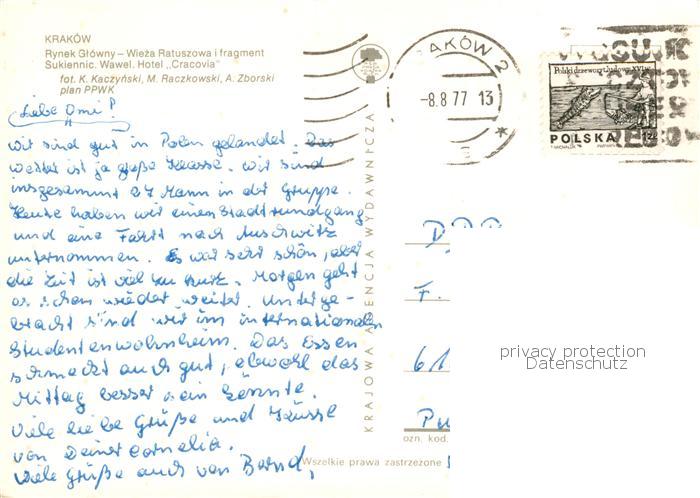 KRAKÓW
Rynek Główny – Wieża Ratuszowa i fragment
Sukiennic. Wawel. Hotel „Cracovia”
fot. K. Kaczyński, M. Raczkowski, A. Zborski
plan PPWK
Liebe Omi!
wir sind gut in Polen gelandet. Das
Wetter ist ja große Klasse. Wir sind
insgesammt 27 Mann in der Gruppe.
Heute haben wir einen Stadtrundgang
und eine Fahrt nach Auschwitz
unternommen. Es war sehr schön, aber
die Zeit ist viel zu kurz. Morgen geht
es schon wieder weiter. Unterge-
bracht sind wir im internationalen
Studentenwohnheim. Das Essen
schmeckt auch gut, obwohl das
Mittag besser sein könnte.
Viele liebe Grüße und Küsse
von Deiner Cornelia.
Viele Grüße auch von Bernd,
KRAJOWA AGENCJA WYDAWNICZA
KRAKÓW 2
-8.8 77 13
Polski drzeworyt ludowy XVI w.
POLSKA
DDR
F.
61
Pu
ozn. kod.
Wszelkie prawa zastrzeżone
privacy protection
Datenschutz